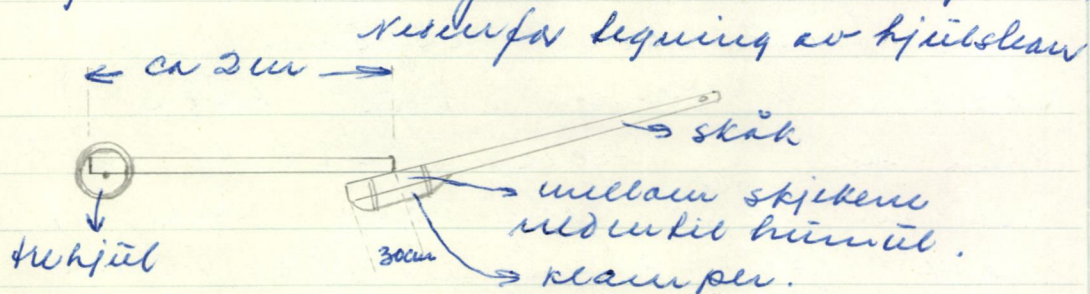 Nedenfor tegning av hjulskar
ca 2m
skåk
mellom skjekene
nedentil humul.
30cm
klamper.
trehjul